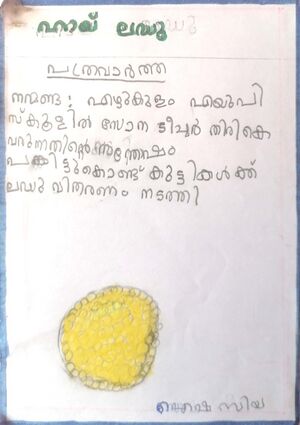 ഹായ് ലഡു
പത്രവാർത്ത
നന്മണ്ട : എഴുകുളം എയുപി
സ്കൂളിൽ സോന ടീച്ചർ തിരികെ
വന്നതിന്റെ സന്തോഷം
പങ്കിട്ടുകൊണ്ട് കുട്ടികൾക്ക്
ലഡു വിതരണം നടത്തി
സിയ